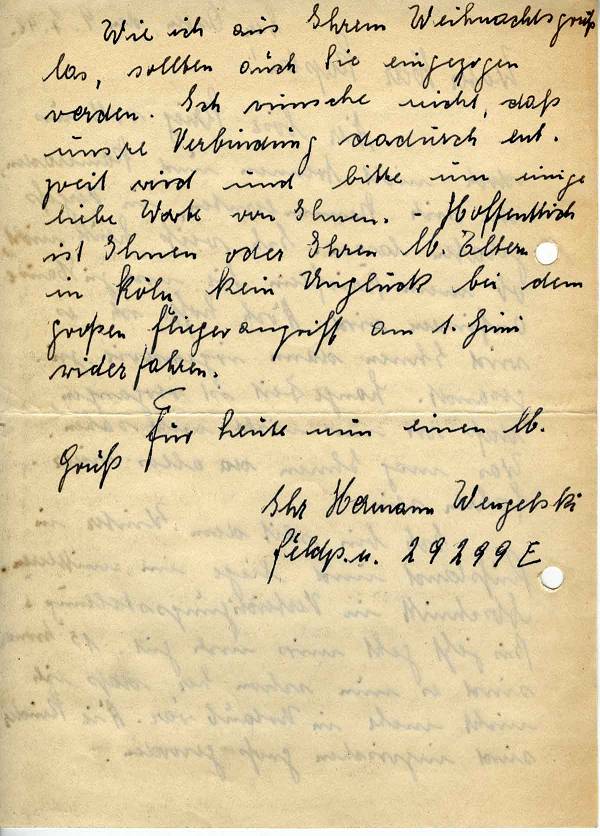 Wie ich aus Ihrem Weihnachtsgruß
las, sollten auch Sie eingezogen
werden. Ich wünsche nicht, daß
unsre Verbindung dadurch ent-
zweit wird und bitte um einige
liebe Worte von Ihnen. - Hoffentlich
ist Ihnen oder Ihren lb. Eltern
in Köln kein Unglück bei dem
großen Fliegerangriff am 1. Juni
widerfahren.
Für heute nun einen lb.
Gruß
Ihr Hermann
Feldp.n. 29299 E